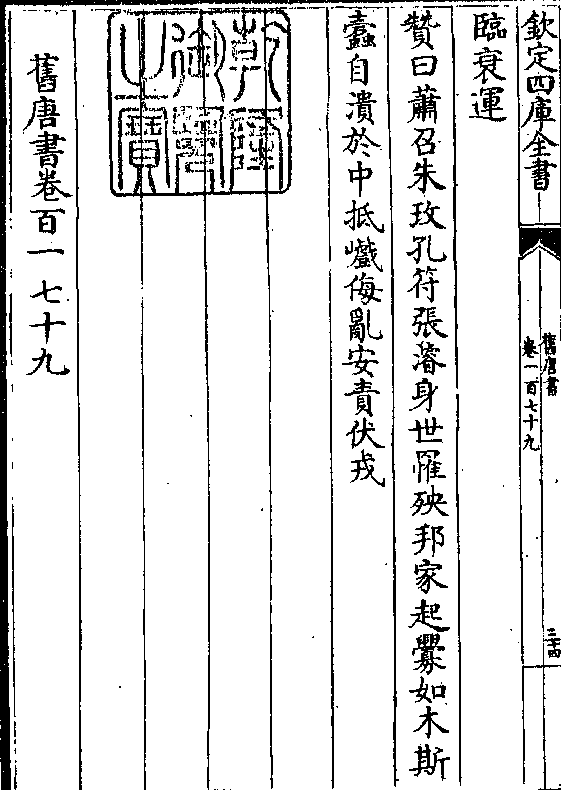 欽定四庫全書
舊唐書
卷一百七十九
三十四
臨衰運
贊曰蕭召朱玫孔符張濬身世罹殃邦家起釁如木斯
蠹自潰於中抵巇侮亂安責伏戎
乾隆御覽之寶
舊唐書卷百一七十九